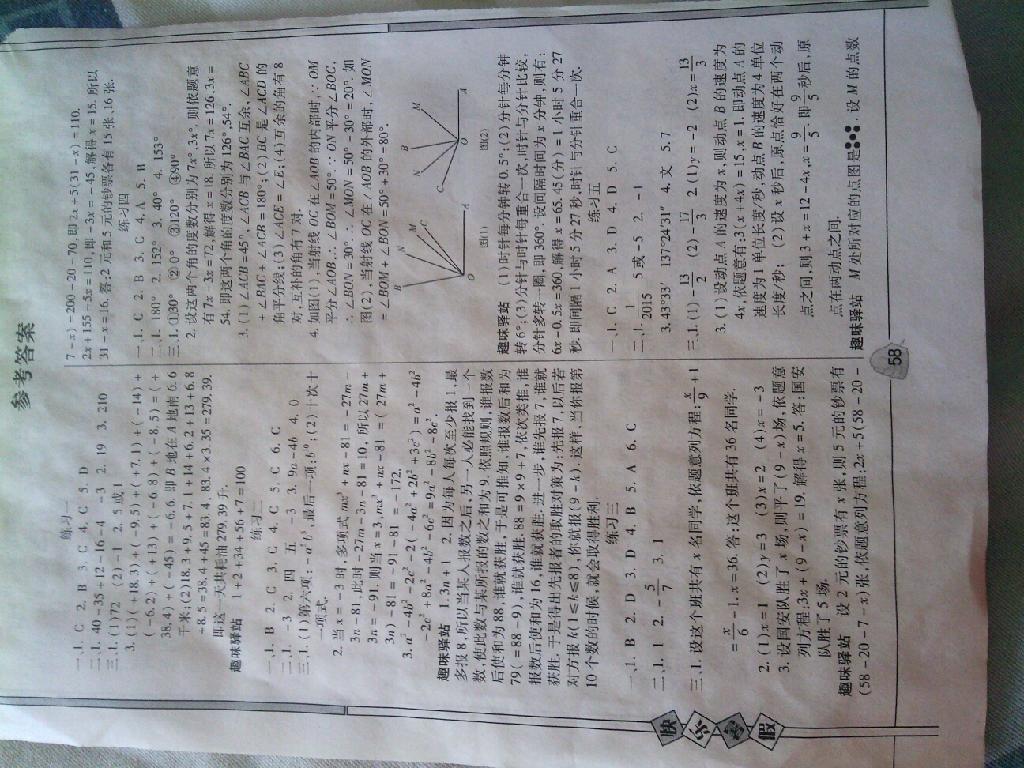 参考答案
练习一
一、1. C 2. B 3. C 4. C 5. D
二、1. 40 -35 +12 -16 -4 -3 2. 19 3. 210
三、1. (1)72 (2)-1 2. 5或1
3. (1)(+18.3)+(-9.5)+(+7.1)+(-14)+
(-6.2)+(+13)+(-6.8)+(-8.5)=(+
38.4)+(-45)=-6.6,即B地在A地南6.6
千米;(2)18.3+9.5+7.1+14+6.2+13+6.8
+8.5=38.4+45=83.4,83.4×3.35=279.39.
即这一天共耗油279.39升.
趣味驿站 1+2+34+56+7=100
练习二
一、1. B 2. C 3. C 4. C 5. C 6. C
二、1. -3 2. 四 五 -3 3. 9a -46 4. 0
2. 当x=-3时,多项式mx³+nx-81=-27m-
3n-81,此时-27m-3n-81=10,所以27m+
3n=-91.则当x=3,mx³+nx-81=(27m+
3n)-81=-91-81=-172.
趣味驿站 1. 3n+1 2. 因为每人每次至少报1,最
多报8,所以当某人报数之后,另一人必能找到一个
数,使此数与某所报的数之和为9.依照规则,谁报数
后使和为88,谁就获胜,于是可推知,谁报数后和为
79(=88-9),谁就获胜.88=9×9+7,依次类推,谁
报数后使和为16,谁就获胜,进一步,谁先报7,谁就
获胜.于是得出先报者的取胜对策为:先报7,以后若
对方报k(1≤k≤8),你就报(9-k).这样,当你报第
10个数的时候,就会取得胜利.
练习三
一、1. B 2. D 3. D 4. B 5. A 6. C
二、1. 1 2. -5/7 3. 1
三、1. 设这个班共有x名同学,依题意列方程:x/9+1
=x/6-1,x=36.答:这个班共有36名同学.
2. (1)x=1 (2)y=3 (3)x=2 (4)x=-3
3. 设国安队胜了x场,则平了(9-x)场,依题意
列方程,3x+(9-x)=19.解得x=5.答:国安
队胜了5场.
趣味驿站 设2元的钞票有x张,则5元的钞票有
(58-20-7-x)张,依题意列方程:2x+5(58-20-
7-x)=200-20-70,即2x+5(31-x)=110,
2x+155-5x=110,即-3x=-45,解得x=15.所以
31-x=16.答:2元和5元的钞票各有15张、16张.
练习四
一、1. C 2. B 3. C 4. A 5. B
二、1. 180° 2. 152° 3. 40° 4. 153°
三、1. ①130° ②0° ③120° ④90°
2. 设这两个角的度数分别为7x°,3x°,则依题意
有7x-3x=72,解得x=18.所以7x=126,3x=
54.即这两个角的度数分别为126°,54°.
3. (1)∠ACB=45°,∠ACB与∠BAC互余,∠ABC
+∠BAD+∠ACB=180°;(2)BC是∠ACD的
角平分线;(3)∠AGE=∠E;(4)互余的角有8
对,互补的角有7对.
4. 如图(1),当射线OC在∠AOB的内部时,∵OM
平分∠AOB,∴∠BOM=50°.∵ON平分∠BOC,
∴∠BON=30°.∴∠MON=50°-30°=20°;如
图(2),当射线OC在∠AOB的外部时,∠MON
=∠BOM+∠BON=50°+30°=80°.
图(1) 图(2)
趣味驿站 (1)时针每分钟转0.5°;(2)分针每分钟
转6°;(3)分针与时针每重合一次,时针与分针比较,
分针多转一圈,即360°.设间隔时间为x分钟,则有:
6x-0.5x=360,解得x≈65.45(分)=1小时5分27
秒.即间隔1小时5分27秒,时针与分针重合一次.
练习五
一、1. C 2. A 3. D 4. D 5. C
二、1. 1/2015 5或-5 2. -1
3. 43°33′ 137°24′31″ 4. 文 5. 7
三、1. (1)13/2 (2)-17/3 2. (1)y=-2 (2)x=13/3
3. (1)设动点A的速度为x,则动点B的速度为
4x,依题意有:3(x+4x)=15,x=1.即动点A的
速度为1单位长度/秒,动点B的速度为4单位
长度/秒; (2)设x秒后,原点恰好在两个动
点之间,则3+x=12-4x,x=9/5.即9/5秒后,原
点在两动点之间.
趣味驿站 M处所对应的点图是 .设M的点数
58
快乐寒假